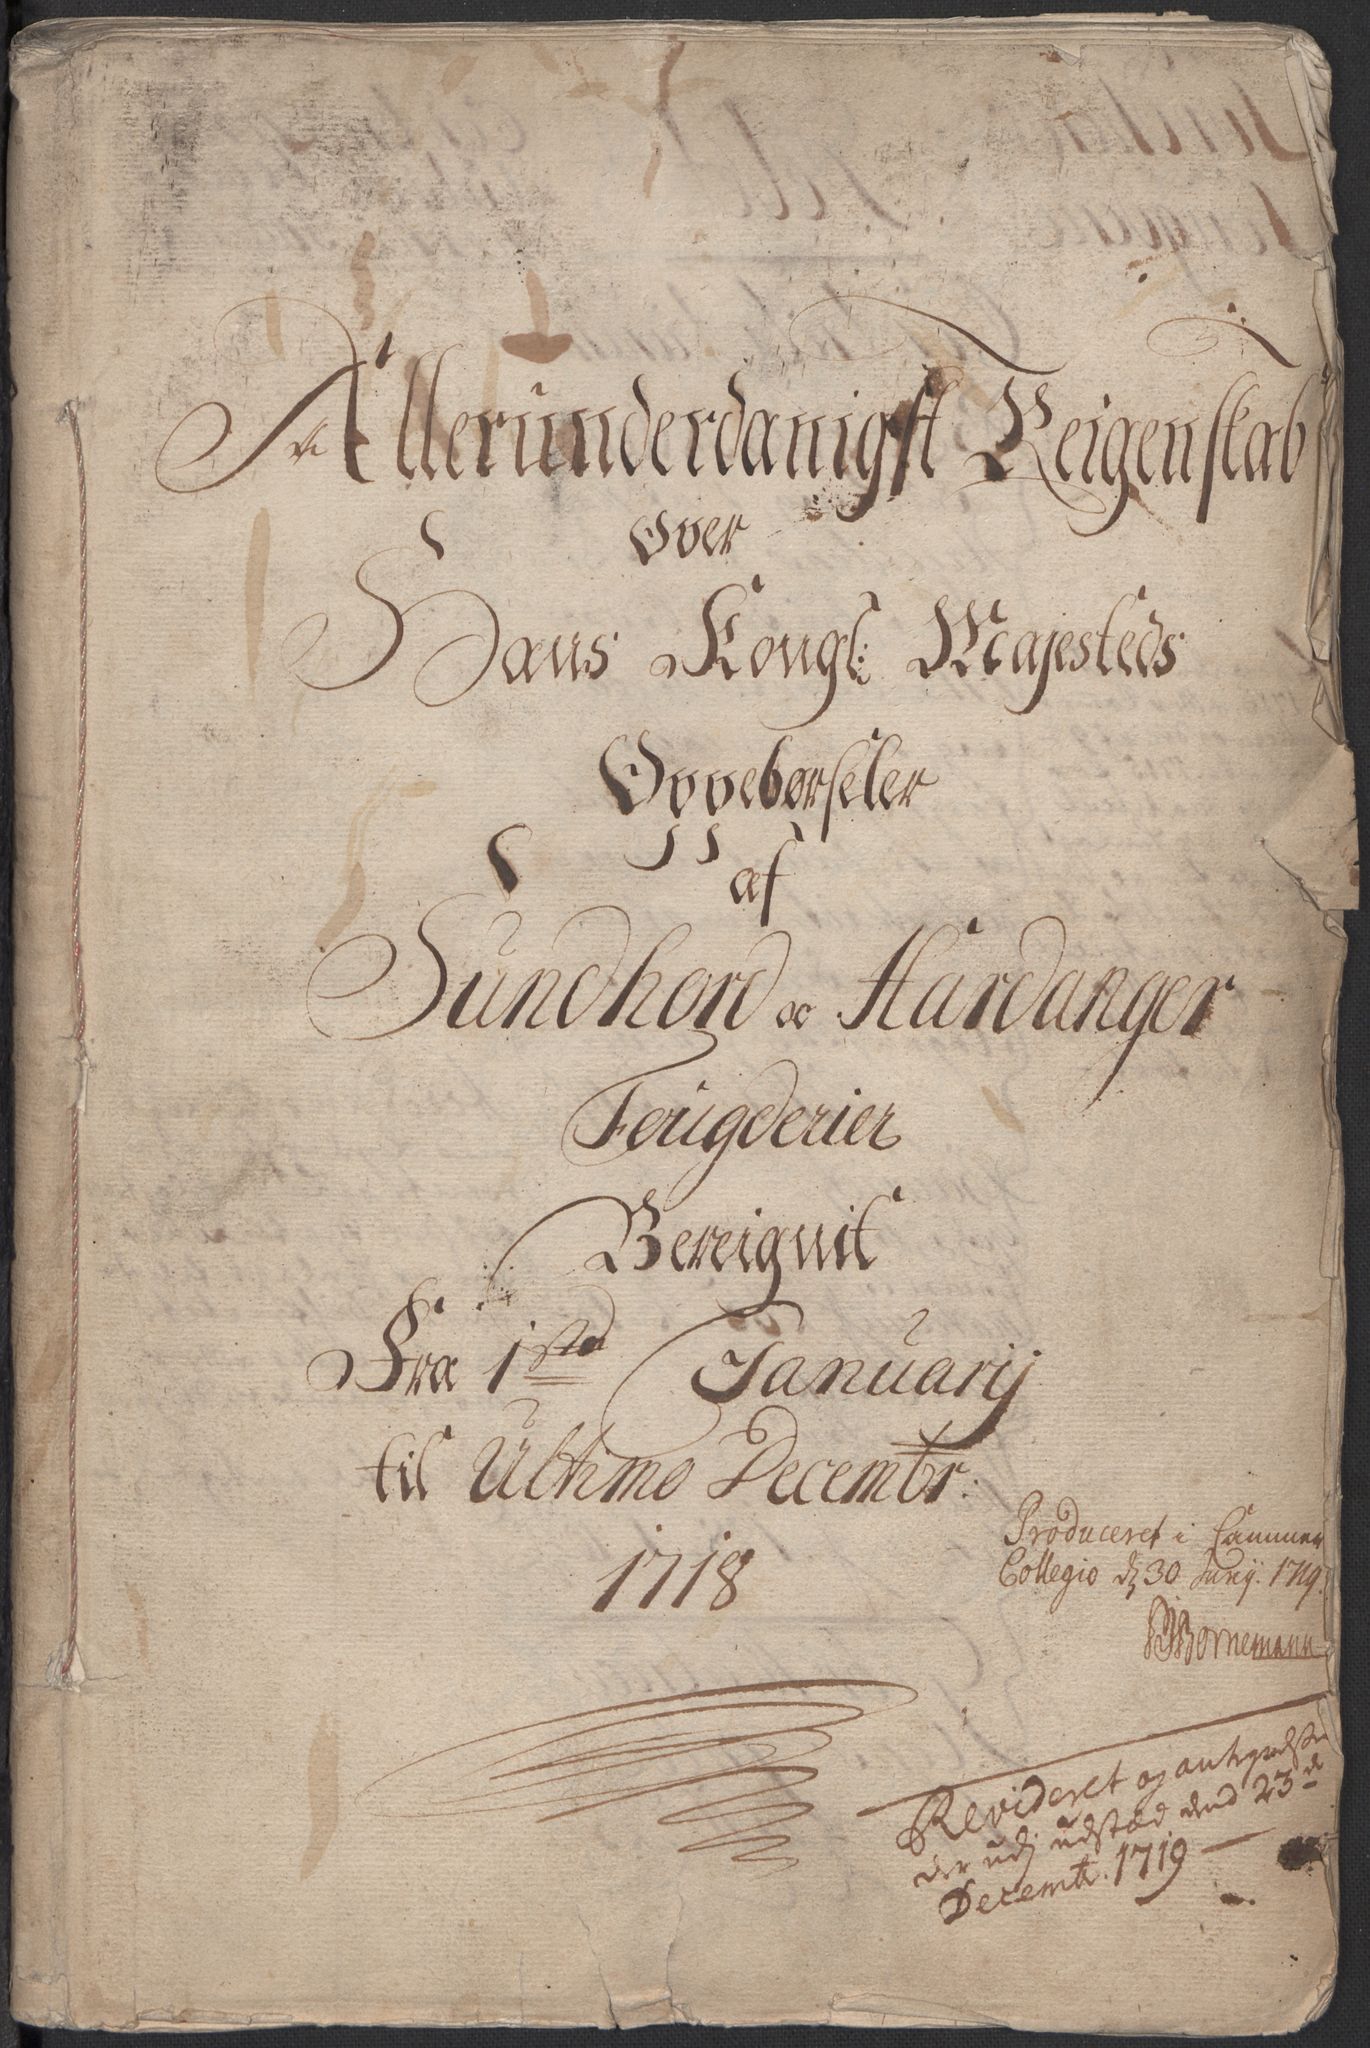 Allerunderdanigst Reigenskab
Over
Hans Kongl: Majesteds
Oppebørseler
af
Sundhord oc Hardanger
Fougderier
Bereignit
Fra 1ste Januarij
til Ultimo Decembr:
1718
Produceret i Cammer
Collegio d: 30 Junij. 1719.
Bornemann
Revideret og antegnelser
der udj udstæd dend 23de
Decembr. 1719